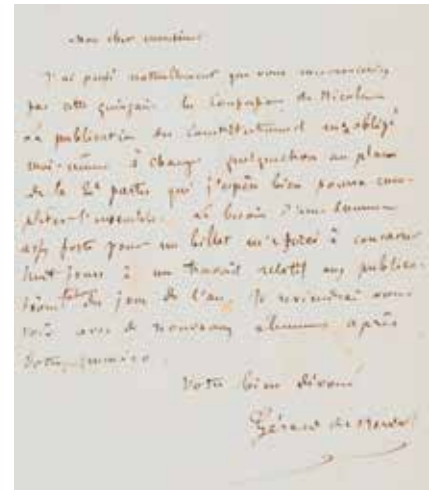 Mon cher monsieur
J'ai pensé naturellement que vous
par cette quinzaine les de Nicolas
La publication du Constitutionnel m'a obligé
moi-même à changer quelque chose au plan
de la 2e partie qui j'espère bien pourra
l'ensemble. Le besoin d'une somme
assez forte pour un billet m'a forcé à consacrer
huit jours à un travail relatif aux publica-
tions du jour de l'an. Je reviendrai vous
voir avec de nouveaux après
votre numéro.
Votre bien dévoué
Gérard de Nerval